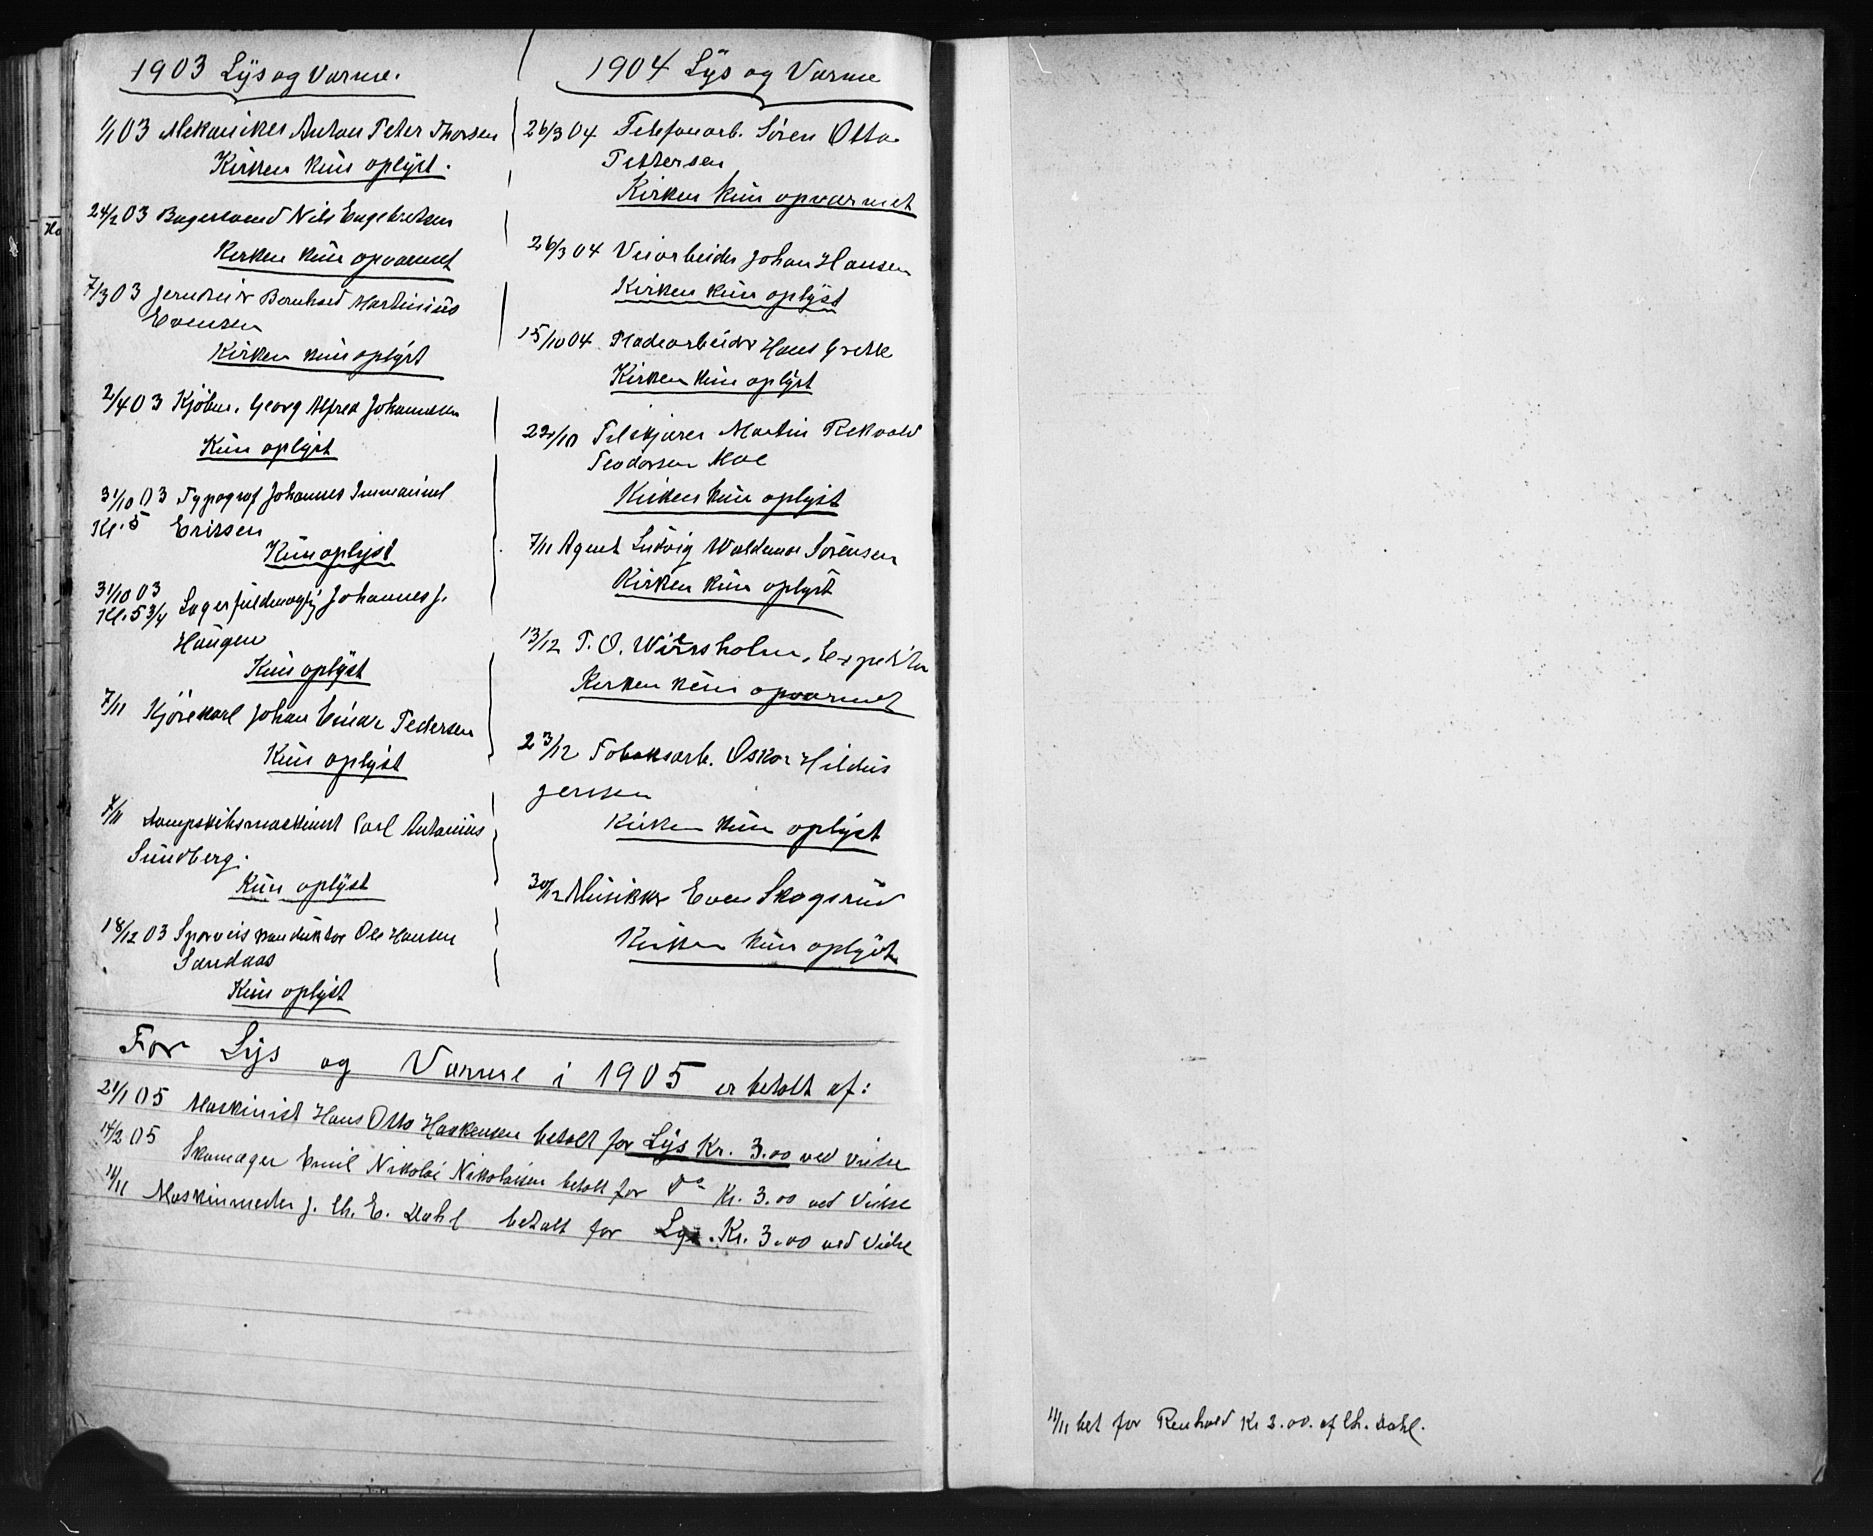 1903 Lys og Varme.
1/1 03 Mekaniker Anton Peter Thorsen
Kirken kun oplyst.
24/2 03 Bagersvend Nils Engebretsen
Kirken kun opvarmet
7/3 03 Jerndreier Bernhard Martinius
Evensen
Kirken kun oplyst
2/4 03 Kjöbm. Georg Alfred Johannesen
Kun oplyst
31/10 03 Typograf Johannes Immanuel
Kl. 5 Erissen
Kun oplyst
31/10 03
Kl. 5 3/4 Lagerfuldmægtig Johannes J.
Haugen
Kun oplyst
7/11 Kjörekarl Johan Einar Pedersen
Kun oplyst
7/11 Dampskibsmaskinist Carl Antonius
Sundberg.
Kun oplyst
18/12 03 Sporveiskonduktör Ole Hansen
Sandaas
Kun oplyst
1904 Lys og Varme
26/3 04 Telefonarb. Sören Otto
Pettersen
Kirken kun opvarmet
26/3 04 Veiarbeider Johan Hansen
Kirken kun oplyst
15/10 04 Pladearbeider Hans
Kirken kun oplyst
22/10 Tilskjærer Martin Rekvald
Teodorsen Moe
Kirken kun oplyst
7/11 Agent Ludvig Waldemar Sörensen
Kirken kun oplyst
13/12 T. O. Wiersholm, Expeditör
Kirken kun opvarmet
23/12 Tobaksarb. Oskar Hildus
Jensen
Kirken kun oplyst
30/12 Musikker Even Skogsrud
Kirken kun oplyst
For Lys og Varme i 1905 er betalt af:
21/1 05 Maskinist Hans Otto Haakensen betalt for Lys Kr. 3.00 ved Vielse
14/2 05 Skomager Emil Nikolai Nikolaisen betalt for Do Kr. 3.00 ved Vielse
11/11 Maskinmester J. Ch. E. Dahl betalt for Lys. Kr. 3.00 ved Vielse
11/11 bet for Renhold Kr 3.00. af Ch. Dahl.